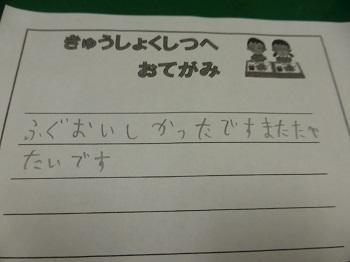 きゅうしょくしつへ
おてがみ
ふぐおいしかったですまたたべ
たいです